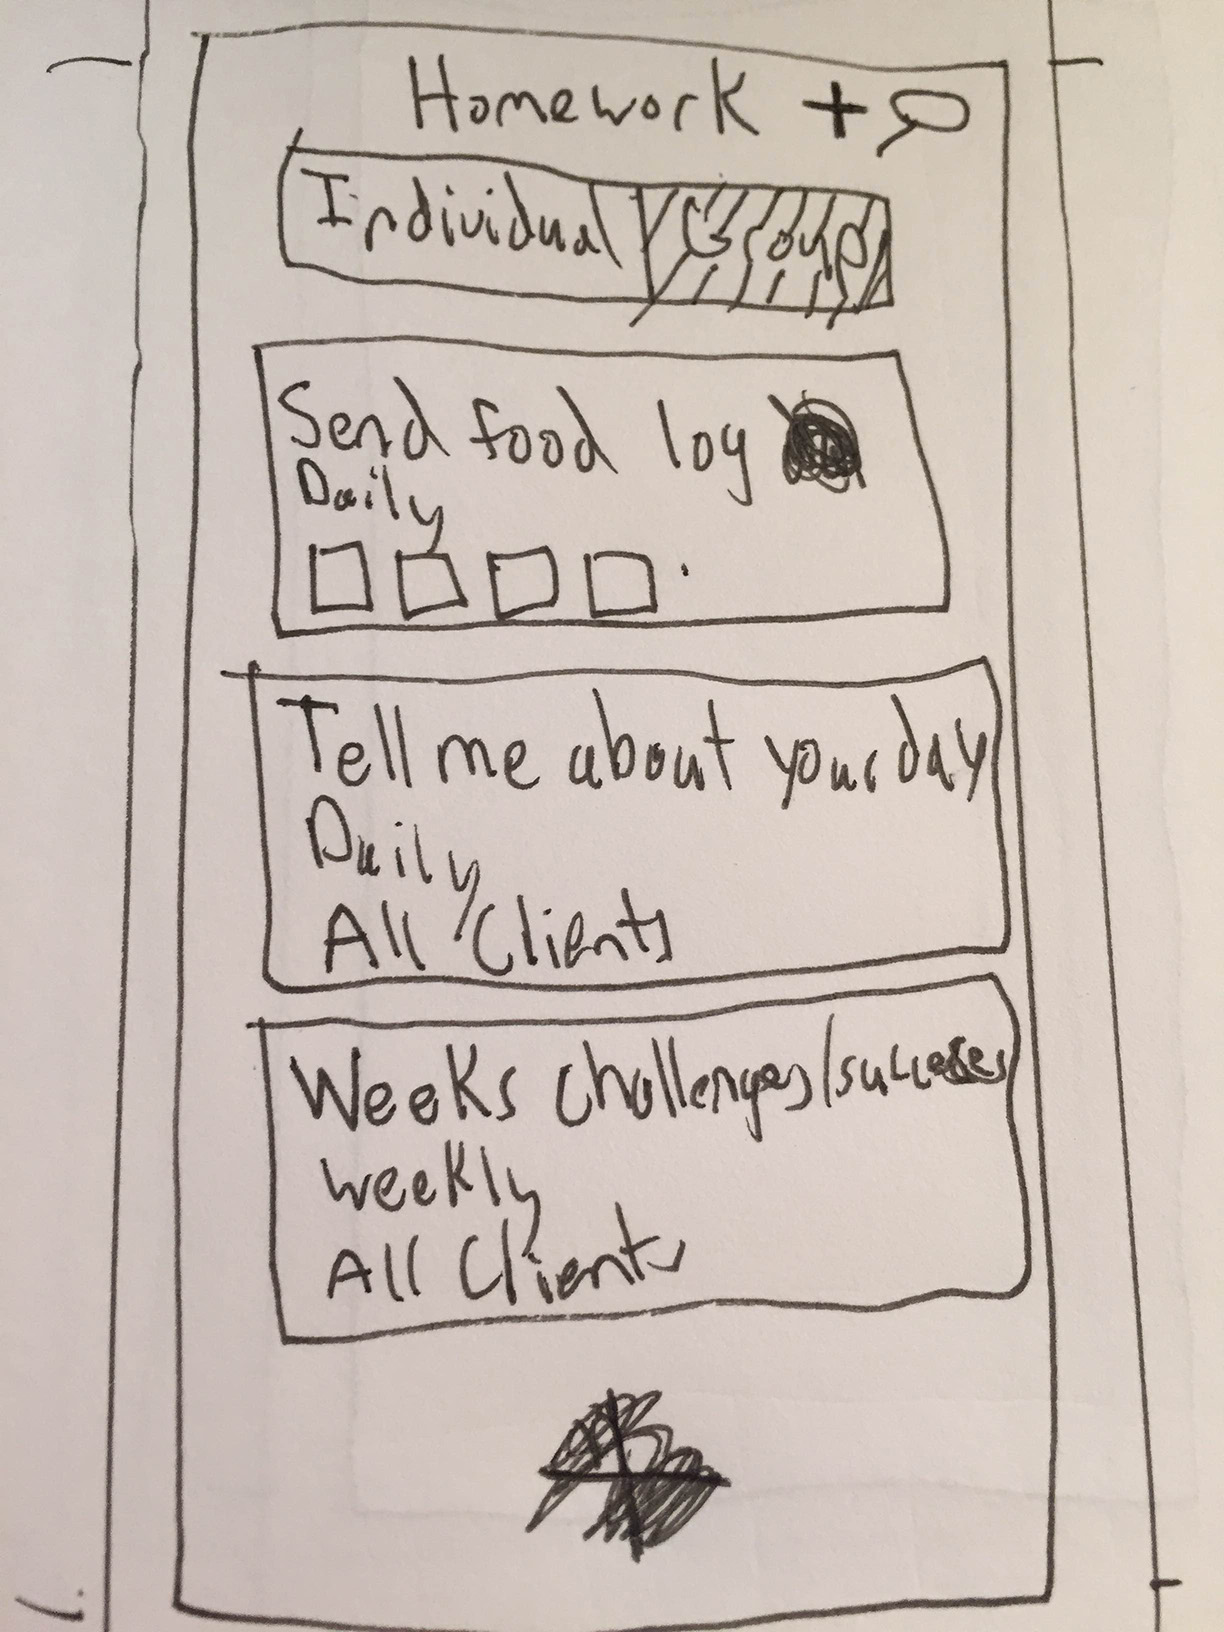 Homework +
Individual Group
Send food log
Daily
Tell me about your day
Daily
All Clients
Weeks challenges/successes
Weekly
All Clients